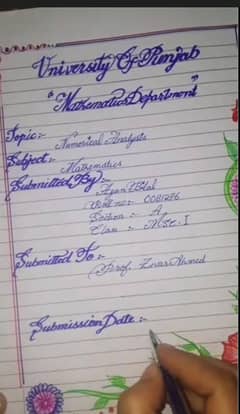 University Of Punjab
"Mathematics Department"
Topic :- Numerical Analysis
Subject :- Mathematics
Submitted By :-
Roll no :- 0081276
Section :- A
Class :- M.Sc. I
Submitted To :-
Prof.
Submission Date :-